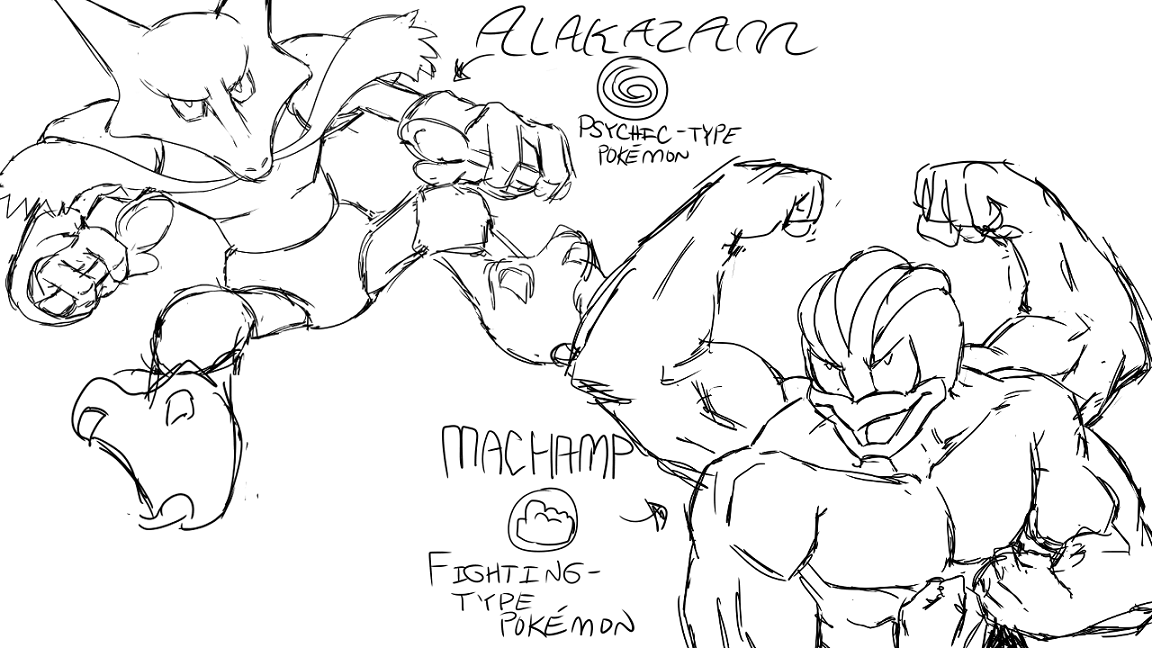 ALAKAZAM
PSYCHIC-TYPE
POKÉMON
MACHAMP
FIGHTING-
TYPE
POKÉMON